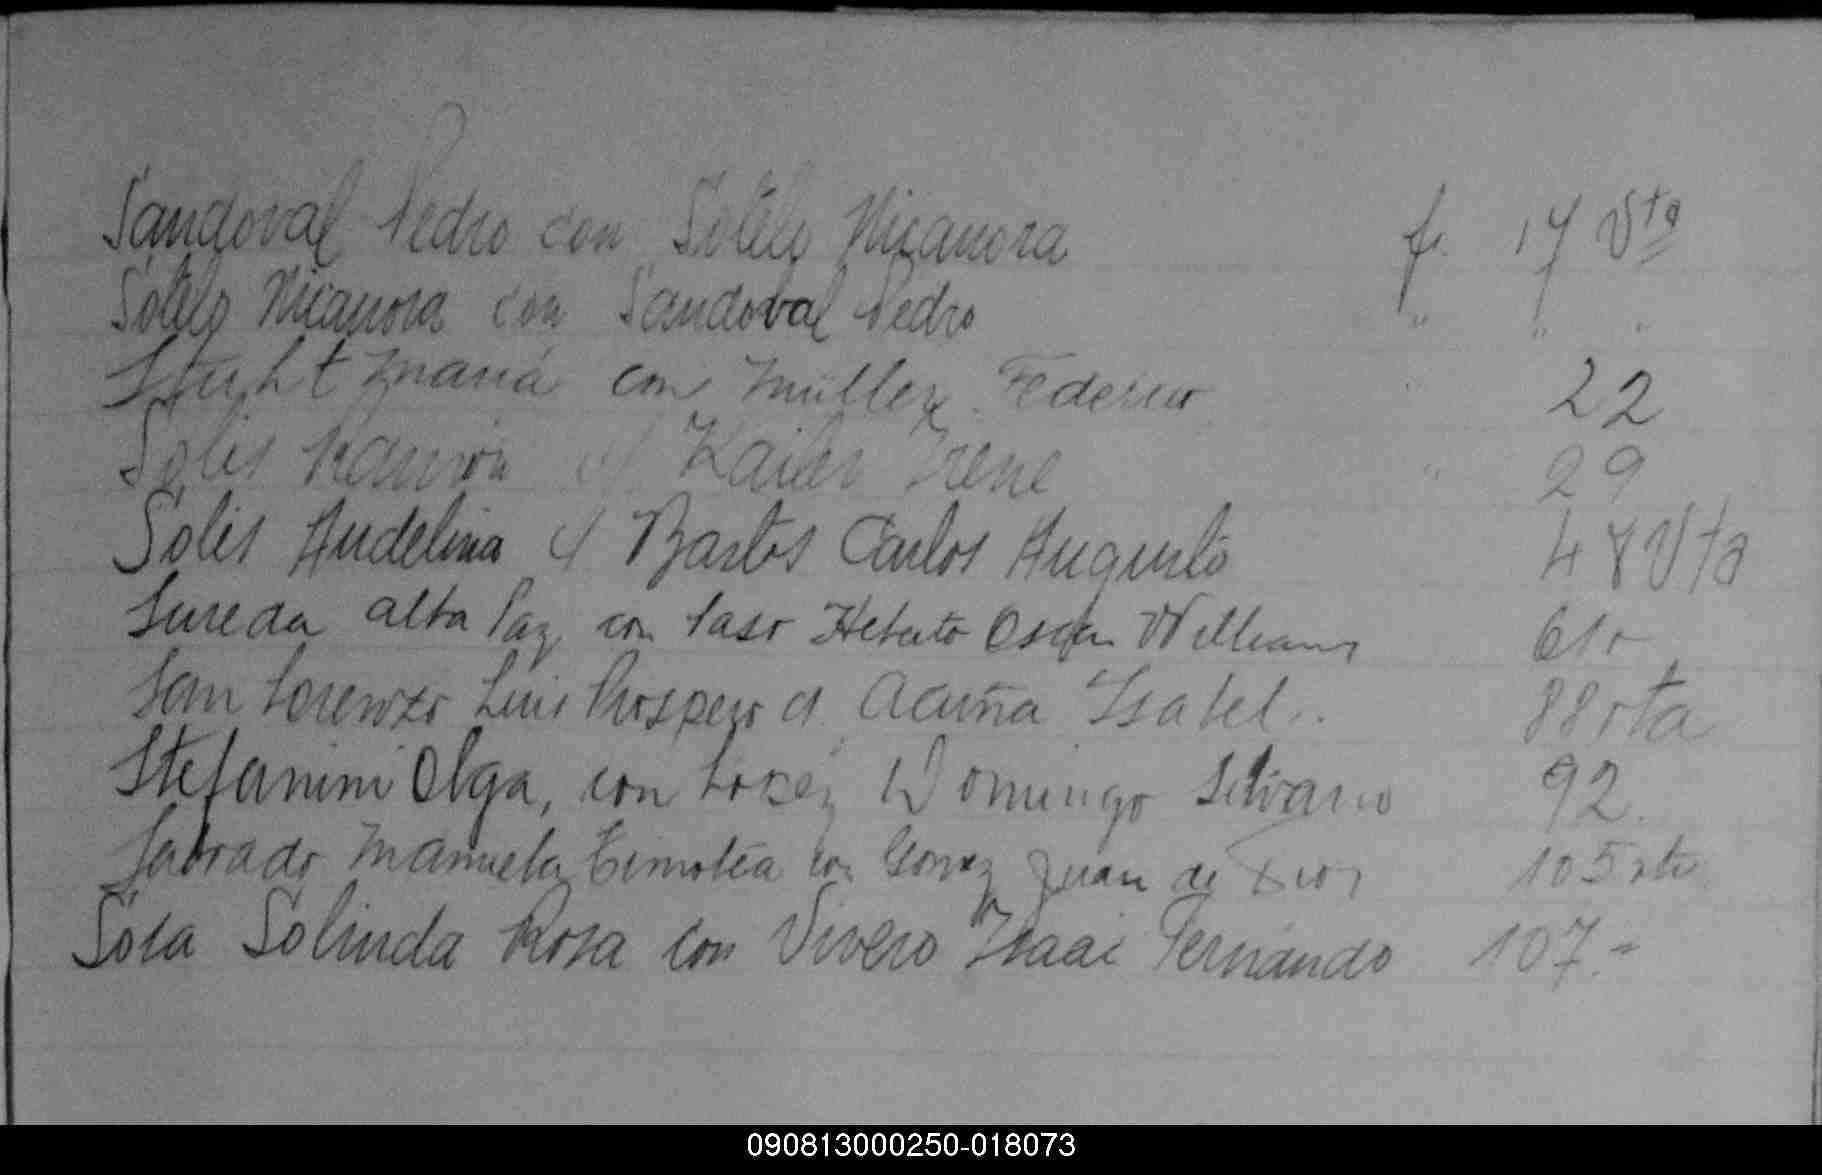 Sandoval Pedro con Sotelo Nicanora fs. 17 Vta
Sotelo Nicanora con Sandoval Pedro " " "
María con Müller Federico " 22
Solis Ramón c/ Irene " 29
Solis Audelina c/ Bartos Carlos Augusto 48 Vta
Sureda alba Paz con Laso Heberto Oscar Williams 61v
San Lorenzo Luis Prospero c/ Acuña Isabel.. 88 vta
Stefanini Olga, con Domingo Silvano 92
Manuela Timotea con Gomez Juan de Dios 105 vta
Sosa Solinda Rosa con Vivero Isaac Fernando 107.-
090813000250-018073